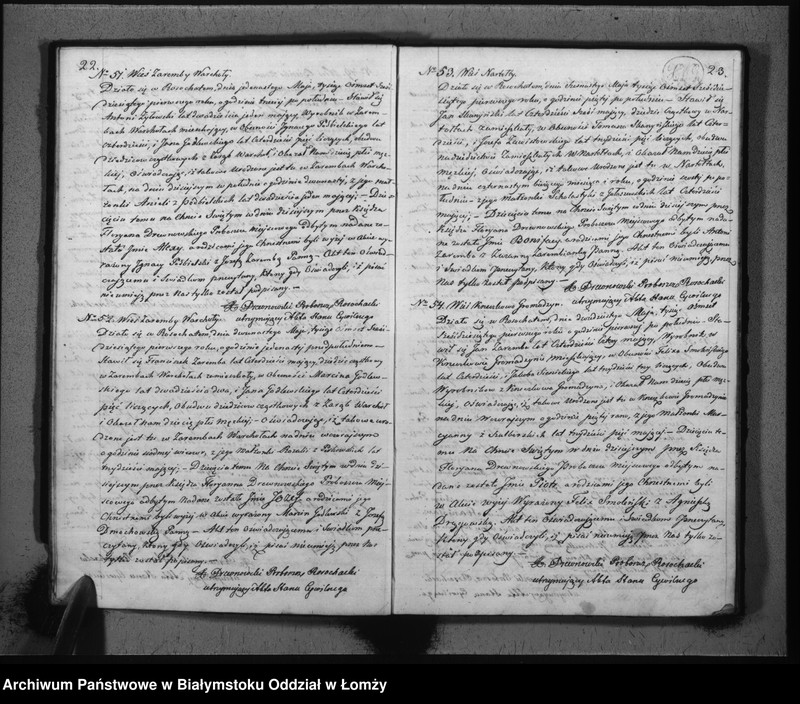 22.
No 51. Wieś Zaremby Warchoły.
Działo się w Rosochatem, dnia jedenastego Maja, tysiąc ośmset
dziesiątego pierwszego roku, o godzinie trzeciej po południu. Stawił się
Antoni lat dwadzieścia jeden mający, Wyrobnik w Zarem-
bach Warchołach mieszkający, w Obecności Ignacego lat
czterdzieści, i Jana Godlewskiego lat Czterdzieści pięć liczących, obudwu
Dziedziców cząstkowych z Zaręb Warchoł, i Okazał Nam dziecię płci męz-
kiej, Oświadczając, iż takowe Urodzone jest tu w Zarembach Warcho-
łach, na dniu dzisiejszym w południe o godzinie dwunastej, z jego mał-
żonki z lat dwadzieścia jeden mającej; Dzie-
cięciu temu na Chrzcie Świętym w dniu dzisiejszym przez Księdza
Floryana Drewnowskiego Proboszcza Miejscowego odbytym nadane zo-
stało Imie a rodzicami jego Chrzestnemi byli wyżej w Akcie wy-
rażony Ignacy z Józefą Zarembą Panną. Akt ten Oświad-
czającemu i Świadkom przeczytany, którzy gdy Oświadczyli, iż pisać
nieumieją przez Nas tylko został podpisany.
X. Drewnowski Proboszcz Rosochacki
utrzymujący Akta Stanu Cywilnego
No 52. Wieś Zaremby Warchoły.
Działo się w Rosochatem, dnia dwunastego Maja, tysiąc Ośmset
dziesiątego pierwszego roku, o godzinie jedenastej przed południem
Stawił się Franciszek Zaremba lat Czterdzieści mający, dziedzic cząstkowy
w Zarembach Warchołach zamieszkały, w Obecności Marcina Godlew-
skiego lat dwadzieścia dwa, i Jana Godlewskiego lat Czterdzieści
pięć liczących, Obudwu dziedziców cząstkowych z Zaręb Warchoł
i Okazał Nam dziecię płci męzkiej, Oświadczając, iż takowe uro-
dzone jest tu w Zarembach Warchołach na dniu wczorajszym
o godzinie siódmej wieczor, z jego małżonki Rozalii z lat
trzydzieści mającej, Dziecięciu temu Na Chrzcie Świętym w dniu dzi-
siejszym przez Księdza Floryana Drewnowskiego Proboszcza Miej-
scowego odbytym Nadane zostało Imie Józef, a rodzicami jego
Chrzestnemi byli wyżej w Akcie wyrażony Marcin Godlewski z Józefą
Panną. Akt ten oświadczającemu i Świadkom prze-
czytany, którzy gdy Oświadczyli, iż pisać nieumieją przez Nas
tylko został podpisany.
X. Drewnowski Proboszcz Rosochacki
utrzymujący Akta Stanu Cywilnego
23.
No 53, Wieś Nartołty.
Działo się w Rosochatem, dnia Maja tysiąc Ośmset Sześćdzie-
siątego pierwszego roku, o godzinie piątej po południu. Stawił się
Jan lat Czterdzieści Sześć mający, dziedzic Cząstkowy w Nar-
tołtach Zamieszkały, w Obecności Tomasza lat Czter-
dzieści, i Józefa lat trzydzieści pięć liczących, obudwu
na dziedzictwie Zamieszkałych w Nartołtach, i Okazał Nam dziecię płci
męzkiej, Oświadczając, iż takowe Urodzone jest tu w Nartołtach,
na dniu bieżącego miesiąca i roku, o godzinie szóstej po po-
łudniu, z jego małżonki Scholastyki z lat Czterdzieści
mającej; Dziecięciu temu na Chrzcie Świętym w dniu dzisiejszym przez
Księdza Floryana Drewnowskiego Proboszcza Miejscowego odbytym nada-
ne zostało Imie Bonifacy, a rodzicami jego Chrzestnemi byli Antoni
Zaremba z Panną. Akt ten Oświadczającemu
i Świadkom przeczytany, którzy gdy Oświadczyli, iż pisać nieumieją, przez
Nas tylko został podpisany.
X. Drewnowski Proboszcz Rosochacki
utrzymujący Akta Stanu Cywilnego
No 54. Wieś
Działo się w Rosochatem, dnia dwudziestego Maja, tysiąc ośmset
Sześćdziesiątego pierwszego roku, o godzinie pierwszej po południu. Sta-
wił się Jan Zaremba lat Czterdzieści mający, Wyrobnik w
mieszkający, w Obecności Felixa
lat Czterdzieści, i Jakóba lat trzydzieści trzy liczących, Obudwu
Wyrobników z i Okazał Nam dziecię płci mę-
zkiej, Oświadczając, iż takowe Urodzone jest tu w
na dniu Wczorajszym o godzinie piątej rano, z jego małżonki Mar-
cyanny z lat trzydzieści pięć mającej. Dziecięciu te-
mu Na Chrzcie Świętym w dniu dzisiejszym przez Księdza
Floryana Drewnowskiego Proboszcza miejscowego odbytym na-
dane zostało Imie Piotr, a rodzicami jego Chrzestnemi byli
w Akcie wyżej Wyrażony Felix z Agnieszką
Akt ten Oświadczającemu i Świadkom Przeczytany,
którzy gdy Oświadczyli, iż pisać nieumieją, przez Nas tylko zo-
stał podpisany.
X. Drewnowski Proboszcz Rosochacki
utrzymujący Akta Stanu Cywilnego
Archiwum Państwowe w Białymstoku Oddział w Łomży